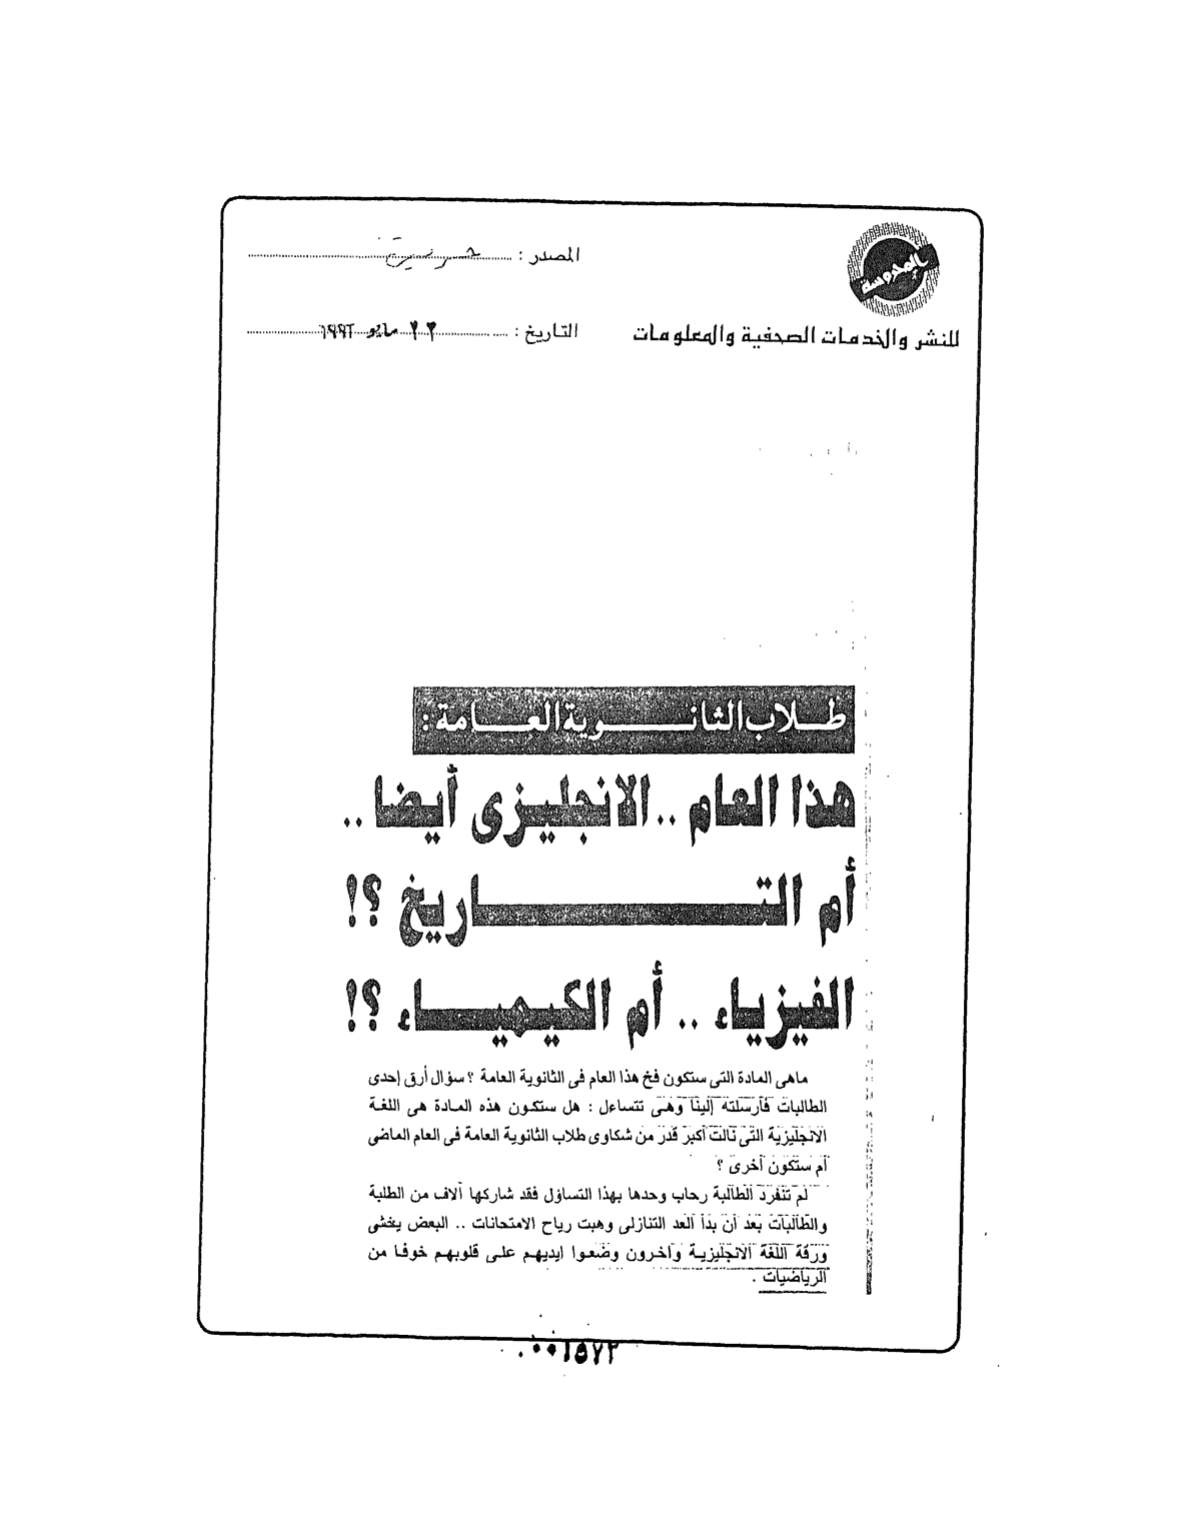 المحروسة
للنشر والخدمات الصحفية والمعلومات
المصدر :
التاريخ : ٢٢ مايو ١٩٩٢
طلاب الثانوية العامة:
هذا العام .. الانجليزى أيضا ..
أم التاريخ ؟!
الفيزياء .. أم الكيمياء ؟!
ماهى المادة التى ستكون فخ هذا العام فى الثانوية العامة ؟ سؤال أرق إحدى
الطالبات فأرسلته إلينا وهى تتساءل : هل ستكون هذه المادة هى اللغة
الانجليزية التى نالت أكبر قدر من شكاوى طلاب الثانوية العامة فى العام الماضى
أم ستكون أخرى ؟
لم تنفرد الطالبة رحاب وحدها بهذا التساؤل فقد شاركها آلاف من الطلبة
والطالبات بعد أن بدأ العد التنازلى وهبت رياح الامتحانات .. البعض يخشى
ورقة اللغة الانجليزية وآخرون وضعوا ايديهم على قلوبهم خوفا من
الرياضيات .
٠٠٠١٥٧٢